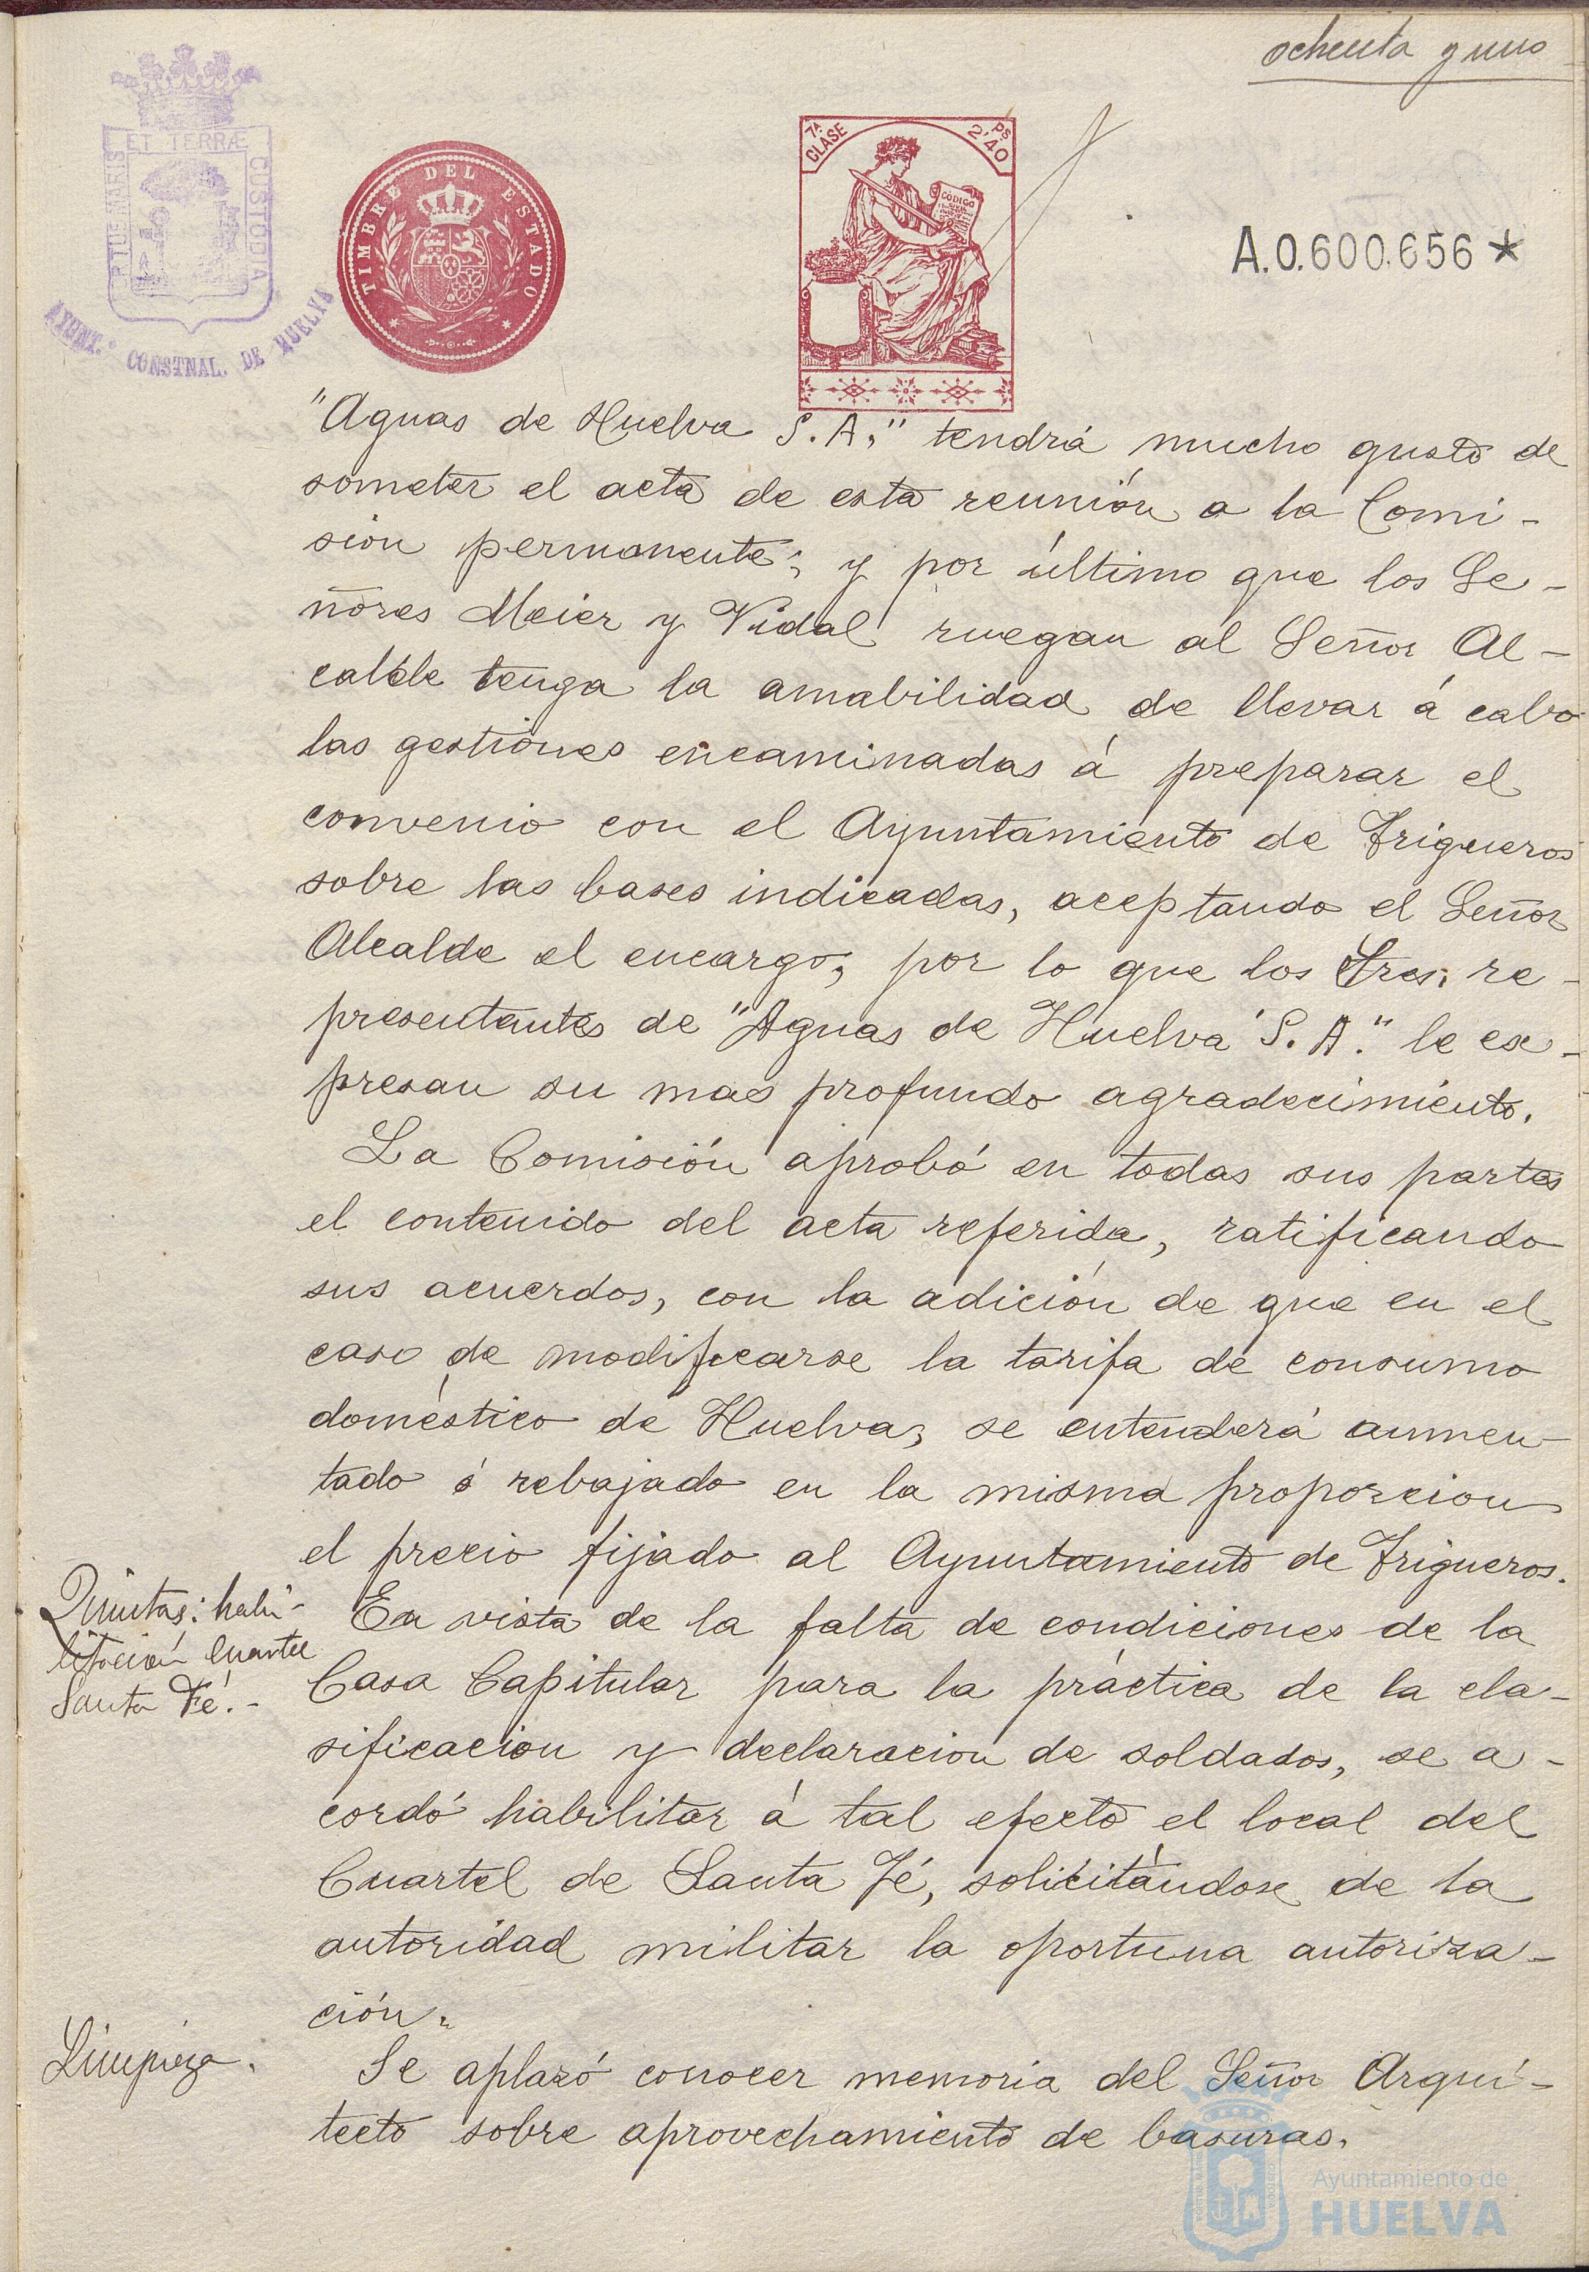 ochenta y uno
ET TERRÆ
PORTUS MARIS
CUSTODIA
AYUNT.º CONSTNAL. DE HUELVA
TIMBRE DEL ESTADO
7ª CLASE
2'40 Ps
CÓDIGO
A.0.600.656 *
"Aguas de Huelva S.A." tendrá mucho gusto de
someter el acta de esta reunión a la Comi-
sion permanente; y por último que los Se-
ñores Meier y Vidal ruegan al Señor Al-
calde tenga la amabilidad de llevar á cabo
las gestiones encaminadas á preparar el
convenio con el Ayuntamiento de Trigueros
sobre las bases indicadas, aceptando el Señor
Alcalde el encargo, por lo que los Sres. re-
presentantes de "Aguas de Huelva S.A." le ex-
presan su mas profundo agradecimiento.
La Comisión aprobó en todas sus partes
el contenido del acta referida, ratificando
sus acuerdos, con la adición de que en el
caso de modificarse la tarifa de consumo
doméstico de Huelva, se entenderá aumen-
tado ó rebajado en la misma proporcion
el precio fijado al Ayuntamiento de Trigueros.
Quintas: habi-
litación Cuartel
Santa Fé.-
En vista de la falta de condiciones de la
Casa Capitular para la práctica de la cla-
sificacion y declaracion de soldados, se a-
cordó habilitar á tal efecto el local del
Cuartel de Santa Fé, solicitándose de la
autoridad militar la oportuna autoriza-
ción.
Limpieza.
Se aplazó conocer memoria del Señor Arqui-
tecto sobre aprovechamiento de basuras.
Ayuntamiento de
HUELVA